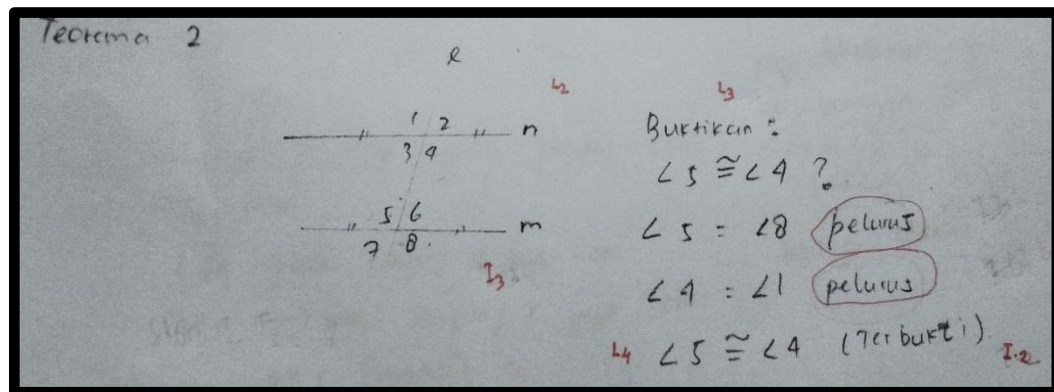 Teorema 2
l
L2
L3
1 2 n
3 4
5 6 m
7 8
I3
Buktikan :
∠5 ≅ ∠4 ?
∠5 = ∠8 pelurus
∠4 = ∠1 pelurus
L4 ∠5 ≅ ∠4 (Terbukti)
I.2